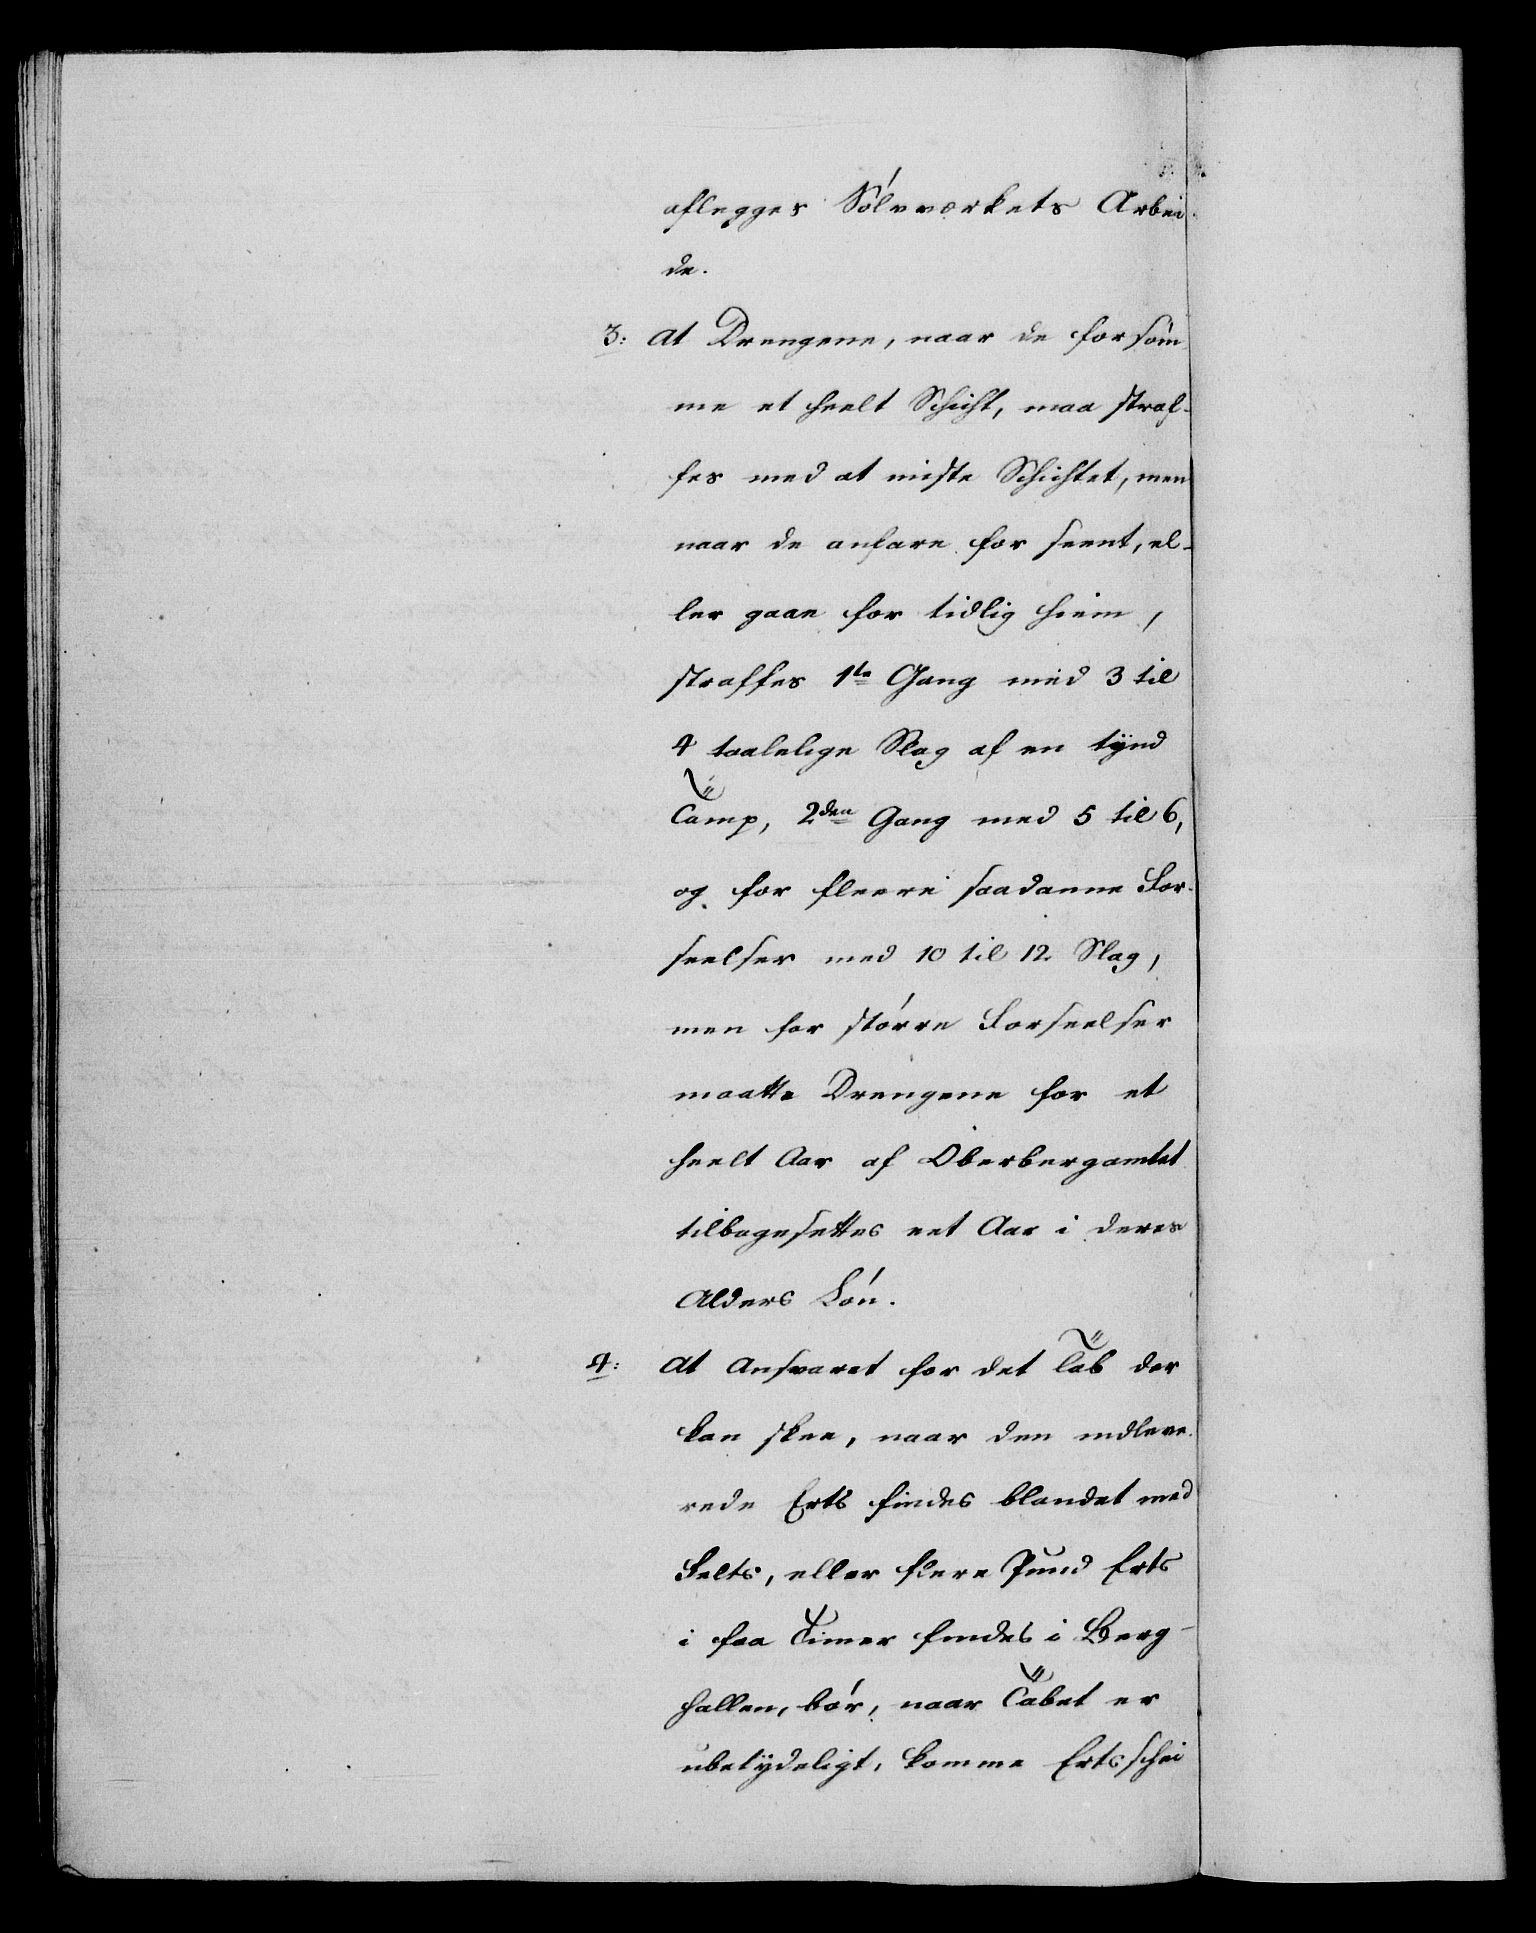 aflegges Sølvværkets Arbei-
de.
3: At Drengene, naar de forsøm-
me et heelt Schicht, maa straf-
fes med at miste Schichtet, men
naar de anfare for seent, el-
ler gaae for tidlig hiem,
straffes 1ste Gang med 3 til
4 taalelige Slag af en tynd
Tamp, 2den Gang med 5 til 6,
og for fleere saadanne For-
seelser med 10 til 12 Slag,
men for større Forseelser
maatte Drengene for et
heelt Aar af Oberbergamtet
tilbagesettes eet Aar i deres
Alders Løn.
4: At Ansvaret for det Tab der
kan skee, naar den indleve-
rede Erts findes blandet med
Felts, eller flere Pund Erts
i faa Timer findes i Berg-
hallen, bør, naar Tabet er
ubetydeligt, komme Ertsschei